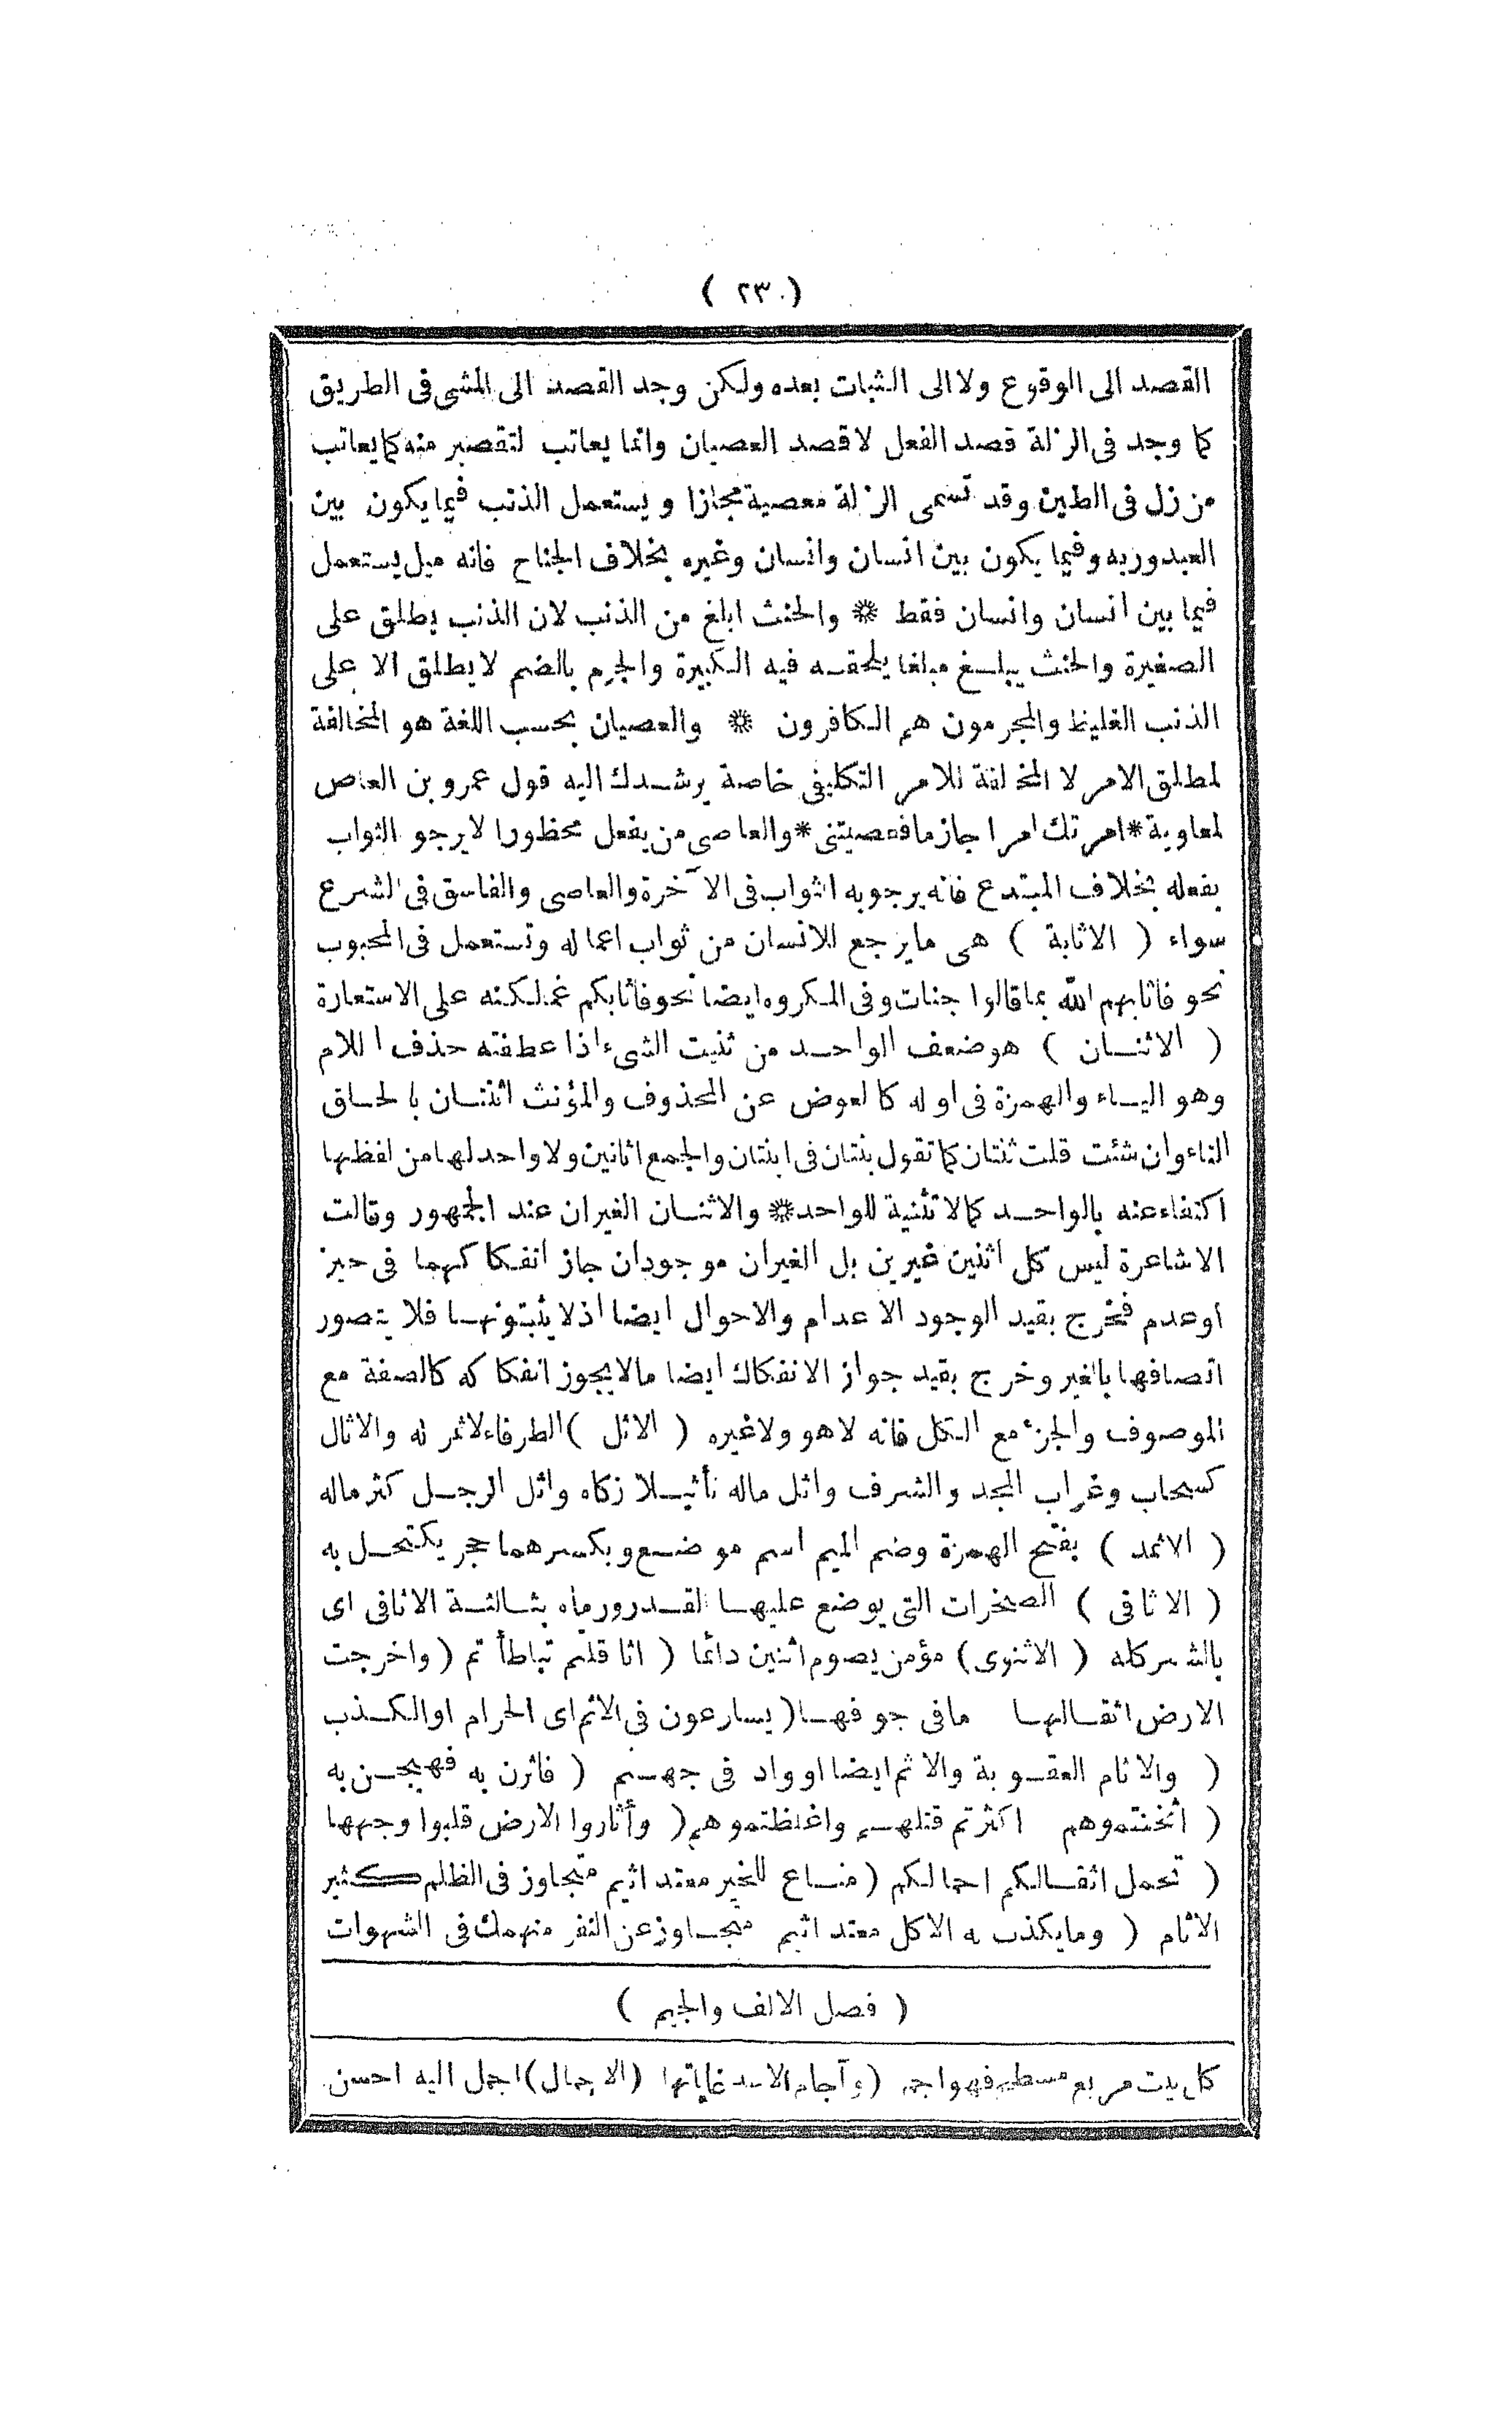 ( ٢٣ )
القصد الى الوقوع ولا الى الثبات بعده ولكن وجد القصد الى المشى فى الطريق
كما وجد فى الزلة قصد الفعل لا قصد العصيان وانما يعاتب لتقصير منه كما يعاتب
من زل فى الطين وقد تسمى الزلة معصية مجازا ويستعمل الذنب فيما يكون بين
العبد وربه وفيما يكون بين انسان وانسان وغيره بخلاف الجناح فانه ميل يستعمل
فيما بين انسان وانسان فقط * والحنث ابلغ من الذنب لان الذنب يطلق على
الصغيرة والحنث يبلغ مبلغا يلحقه فيه الكبيرة والجرم بالضم لا يطلق الا على
الذنب الغليظ والمجرمون هم الكافرون * والعصيان بحسب اللغة هو المخالفة
لمطلق الامر لا المخالفة للامر التكليفى خاصة يرشدك اليه قول عمرو بن العاص
لمعاوية * امرتك امرا جازما فعصيتنى * والعاصى من يفعل محظورا لا يرجو الثواب
بفعله بخلاف المبتدع فانه يرجو به الثواب فى الآخرة والعاصى والفاسق فى الشرع
سواء ( الاثابة ) هى ما يرجع للانسان من ثواب اعماله وتستعمل فى المحبوب
نحو فاثابهم الله بما قالوا جنات وفى المكروه ايضا نحو فاثابكم غما لكنه على الاستعارة
( الاثنان ) هو ضعف الواحد من ثنيت الشىء اذا عطفته حذف اللام
وهو الياء والهمزة فى اوله كالعوض عن المحذوف والمؤنث اثنتان بالحاق
التاء وان شئت قلت ثنتان كما تقول بنتان فى ابنتان والجمع اثانين ولا واحد لها من لفظها
اكتفاء عنه بالواحد كما لا تثنية للواحد * والاثنان الغيران عند الجمهور وقالت
الاشاعرة ليس كل اثنين غيرين بل الغيران موجودان جاز انفكاكهما فى حيز
او عدم فخرج بقيد الوجود الاعدام والاحوال ايضا اذ لا يثبتونها فلا يتصور
اتصافها بالغير وخرج بقيد جواز الانفكاك ايضا ما لا يجوز انفكاكه كالصفة مع
الموصوف والجزء مع الكل فانه لا هو ولا غيره ( الاثل ) الطرفاء لا ثمر له والاثال
كسحاب وغراب المجد والشرف واثل ماله تأثيلا زكاه واثل الرجل كثر ماله
( الاثمد ) بفتح الهمزة وضم الميم اسم موضع وبكسرهما حجر يكتحل به
( الاثافى ) الصخرات التى يوضع عليها القدر ورماه بثالثة الاثافى اى
بالشر كله ( الاثنوى ) مؤمن يصوم اثنين دائما ( اثاقلتم تباطأتم ( واخرجت
الارض اثقالها ما فى جوفها ( يسارعون فى الاثم اى الحرام او الكذب
( والاثام العقوبة والاثم ايضا او واد فى جهنم ( فاثرن به فهيجن به
( أثخنتموهم اكثرتم قتلهم واغلظتموهم ( وأثاروا الارض قلبوا وجهها
( تحمل اثقالكم احمالكم ( مناع للخير معتد اثيم متجاوز فى الظلم كثير
الاثام ( وما يكذب به الا كل معتد اثيم متجاوز عن النفر منهمك فى الشهوات
( فصل الالف والجيم )
كل بيت مربع مسطح فهو اجم ( وآجام الاسد غاباتها ( الاجمال ) اجمل اليه احسن